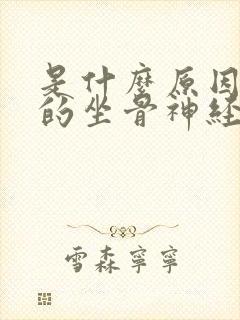 是什麼原因
的坐骨神经
雪森寧寧